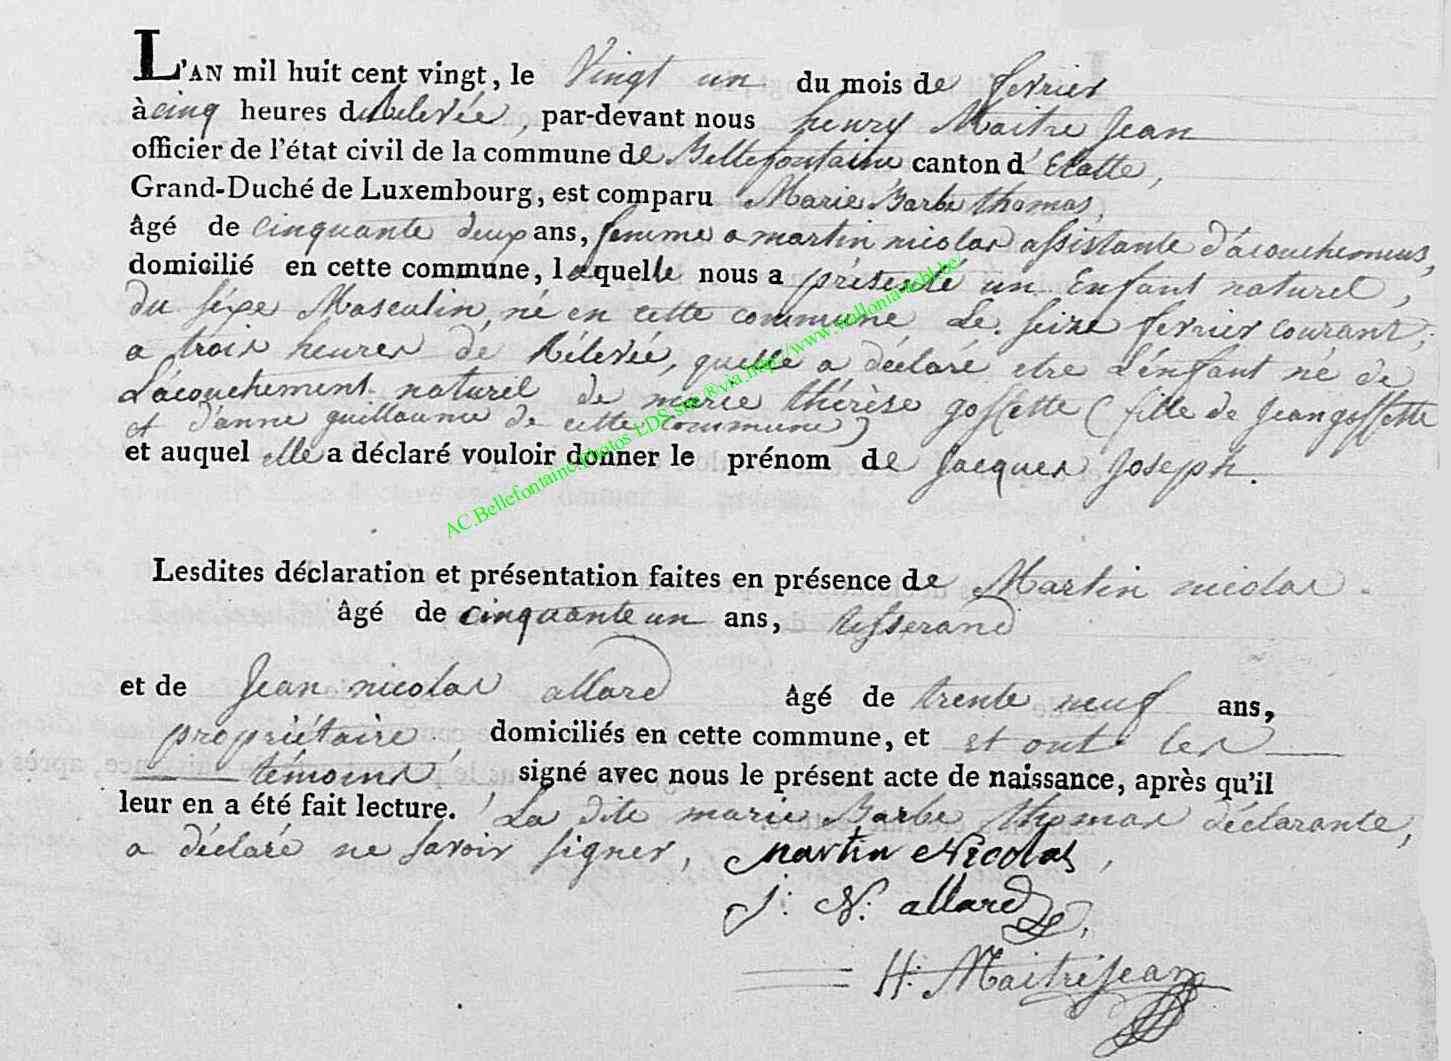 L'AN mil huit cent vingt, le Vingt un du mois de fevrier
à cinq heures de Relevée, par-devant nous henry Maitre Jean
officier de l'état civil de la commune de Bellefontaine canton d'Etalle,
Grand-Duché de Luxembourg, est comparu Marie Barbe thomas,
âgé de cinquante deux ans, femme a martin nicolas assistante d'acouchemens,
domicilié en cette commune, laquelle nous a présenté un Enfant naturel,
du sexe Masculin, né en cette commune Le seize fevrier courant,
a trois heures de Rélevée, quelle a déclaré etre L'énfant né de
L'acouchement naturel de marie thérèse gossette (fille de Jean gossette
et d'anne guillaume de cette commune)
et auquel elle a déclaré vouloir donner le prénom de Jacques Joseph.
AC.Bellefontaine Photos LDS.site®via.http://www.wallonia-gcbl.be/
Lesdites déclaration et présentation faites en présence de Martin nicolas
âgé de cinquante un ans, tisserand
et de Jean nicolas allard âgé de trente neuf ans,
propriétaire, domiciliés en cette commune, et et ont les
témoins, signé avec nous le présent acte de naissance, après qu'il
leur en a été fait lecture. La dite marie Barbe thomas déclarante,
a déclaré ne savoir signer, Martin Nicolas,
J: N: allard
H: MaitreJean